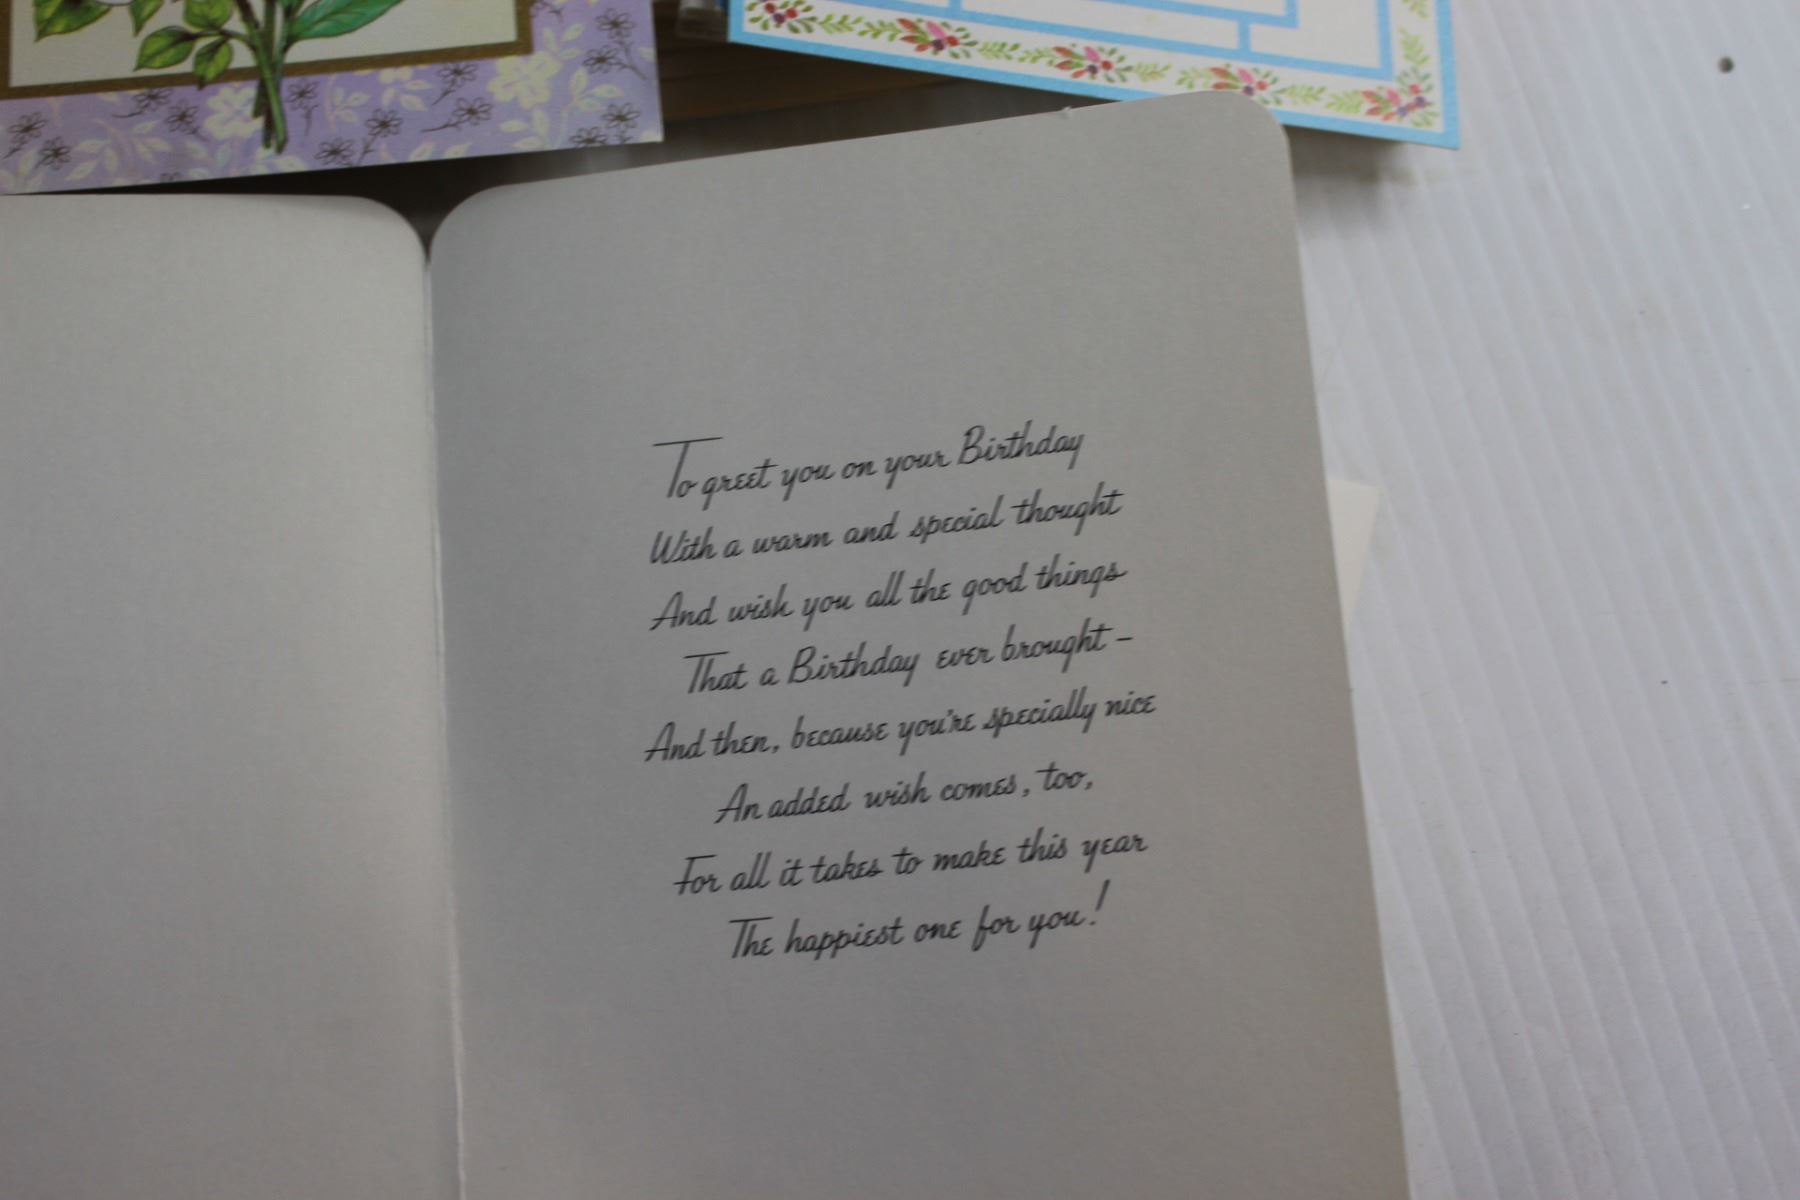 To greet you on your Birthday
With a warm and special thought
And wish you all the good things
That a Birthday ever brought –
And then, because you're specially nice
An added wish comes, too,
For all it takes to make this year
The happiest one for you!